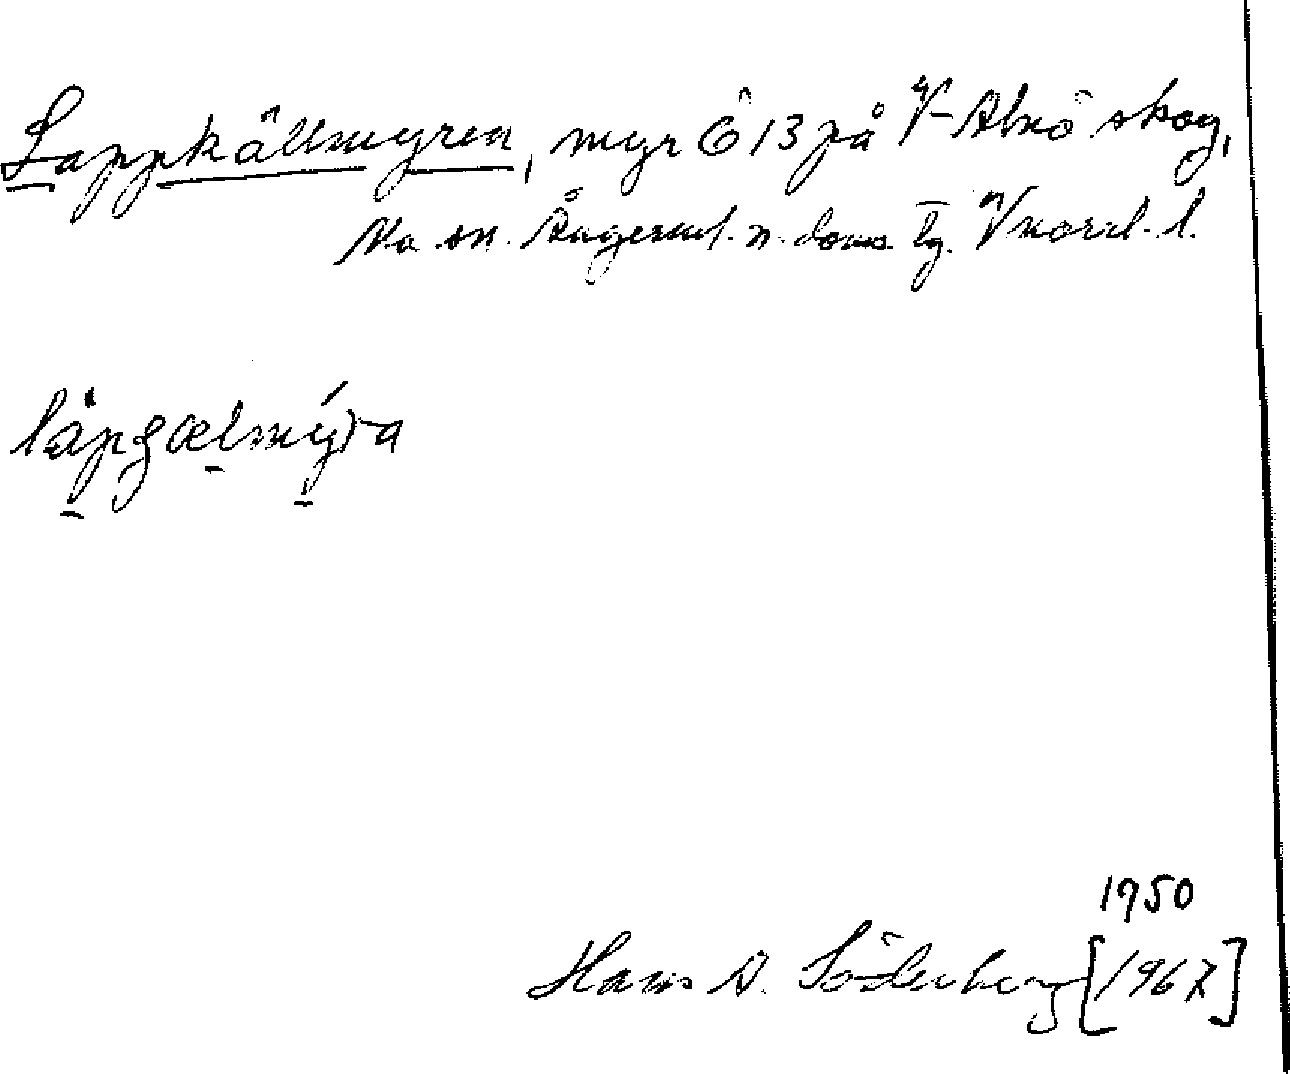 Lappkällmyren, myr Ö 13 på V-Alnö skog,
Na sn. Ångerml. n. doms. tg. Vnorrl. l.
làpgælmýra
1950
Hans A. Söderberg [1967]